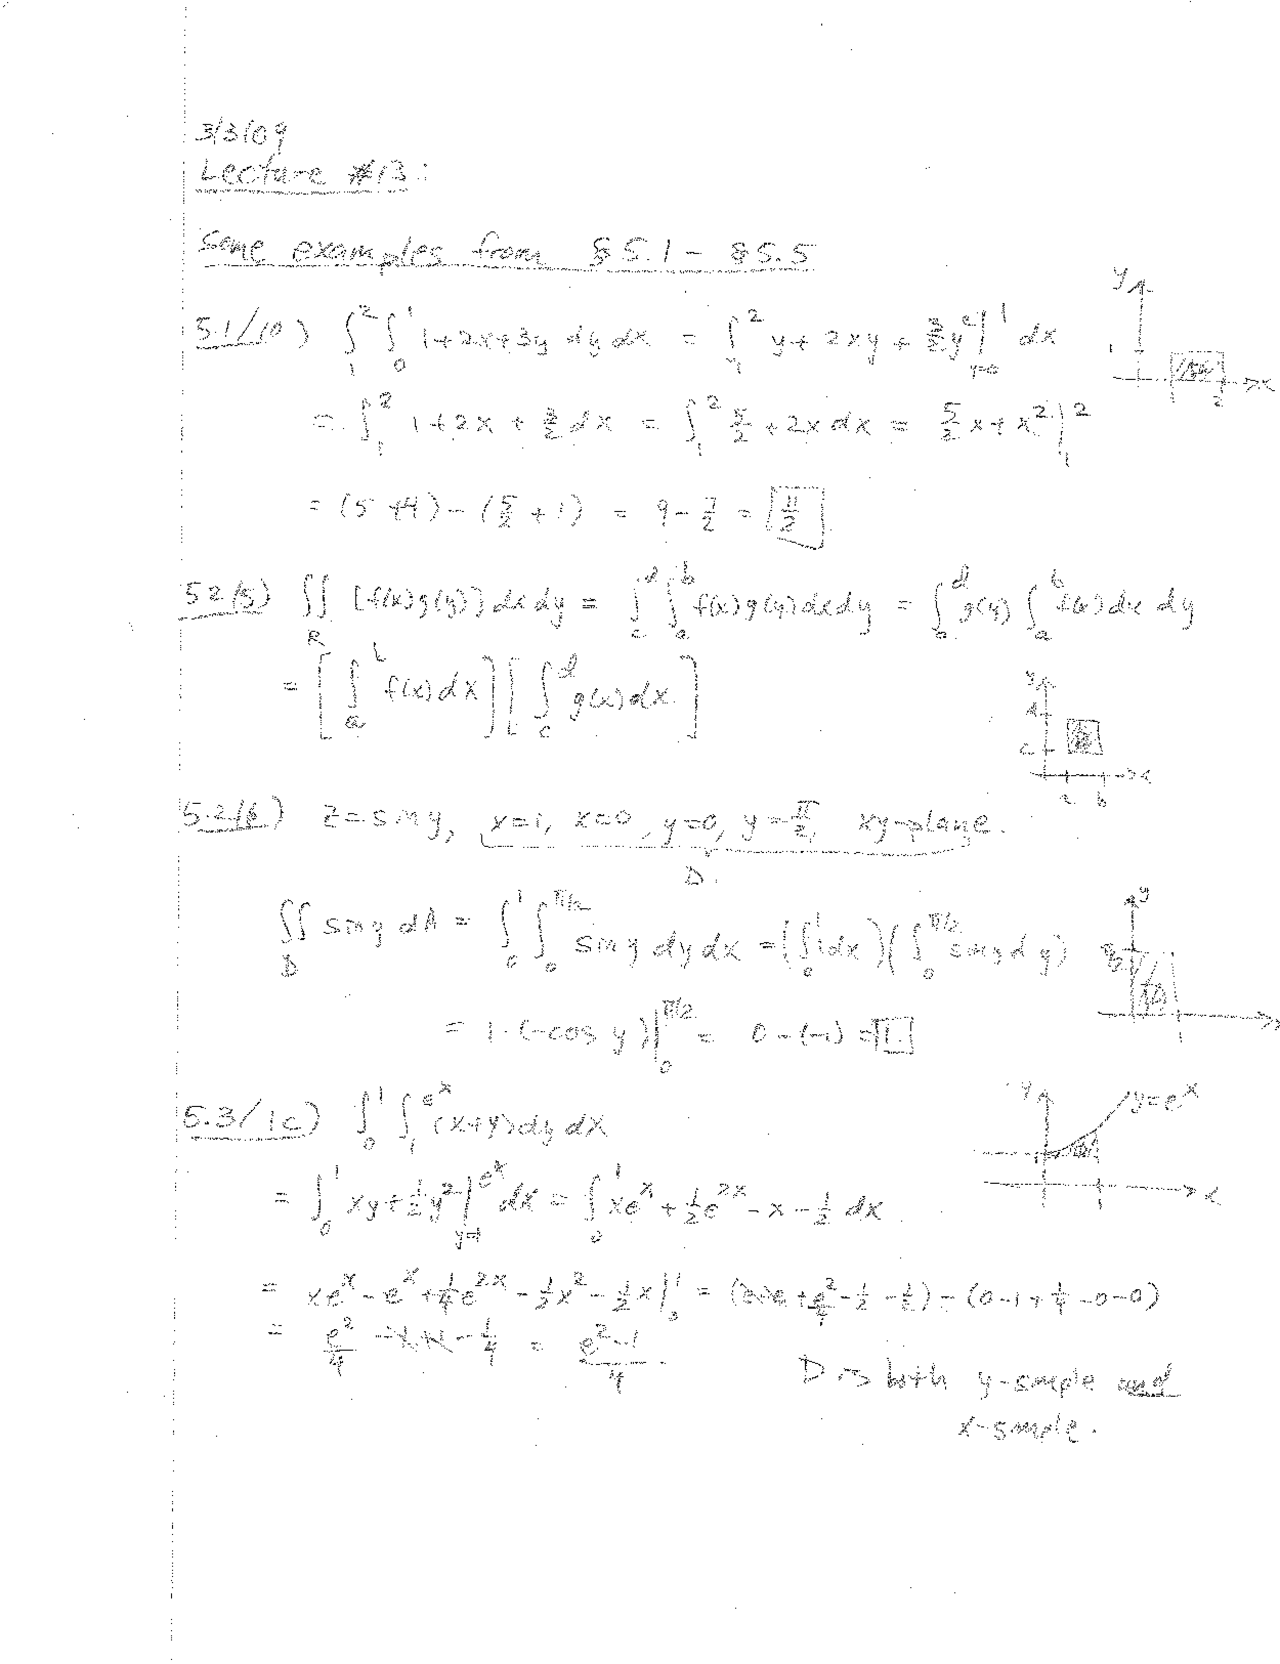 3/3/09
Lecture #13:
Some examples from §5.1 - §5.5
5.1/10) ∫₁² ∫₀¹ 1+2x+3y dy dx = ∫₁² y + 2xy + 3/2 y² |_{y=0}^1 dx
= ∫₁² 1+2x+3/2 dx = ∫₁² 5/2 + 2x dx = 5/2 x + x² |₁²
= (5+4) - (5/2 + 1) = 9 - 7/2 = 11/2
y
1
2
x
5.2/5) ∬_R [f(x)g(y)] dx dy = ∫_c^d ∫_a^b f(x)g(y) dx dy = ∫_c^d g(y) ∫_a^b f(x) dx dy
= [∫_a^b f(x) dx] [∫_c^d g(x) dx]
y
d
c
a b
x
5.2/6) z = sin y, x=1, x=0, y=0, y=π/2, xy-plane.
D.
∬_D sin y dA = ∫₀¹ ∫₀^{π/2} sin y dy dx = (∫₀¹ 1 dx)(∫₀^{π/2} sin y dy)
= 1·(-cos y)|₀^{π/2} = 0 - (-1) = 1.
y
π/2
D
1
5.3/1c) ∫₀¹ ∫₁^{e^x} (x+y) dy dx
= ∫₀¹ xy + 1/2 y² |_{y=1}^{e^x} dx = ∫₀¹ xe^x + 1/2 e^{2x} - x - 1/2 dx
= xe^x - e^x + 1/4 e^{2x} - 1/2 x² - 1/2 x |₀¹ = (e-e + e²/4 - 1/2 - 1/2) - (0-1+1/4-0-0)
= e²/4 - 1+1 - 1/4 = (e²-1)/4
y
y=e^x
1
x
D is both y-simple and
x-simple.